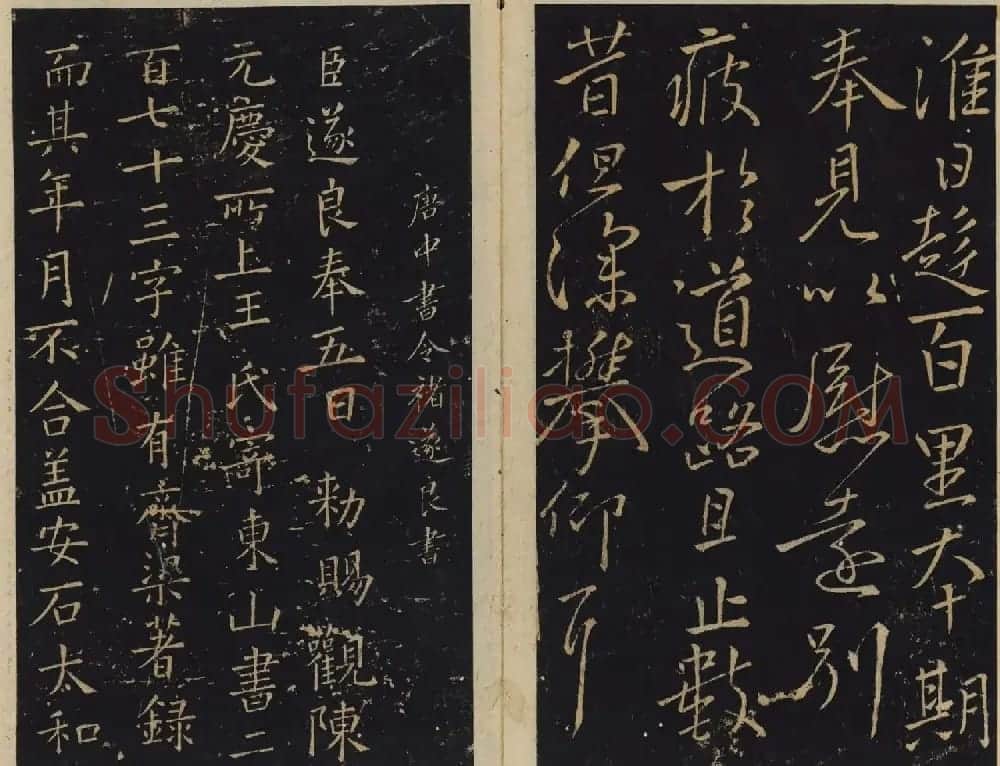 淮日趍百里大十期
奉見以慰遠別
疲於道路且止數
昔但深仰耳
唐中書令褚遂良書
臣遂良奉五日勅賜觀陳
元慶所上王氏寄東山書二
百七十三字雖有齊梁著錄
而其年月不合盖安石太和
Shufaziliao.COM